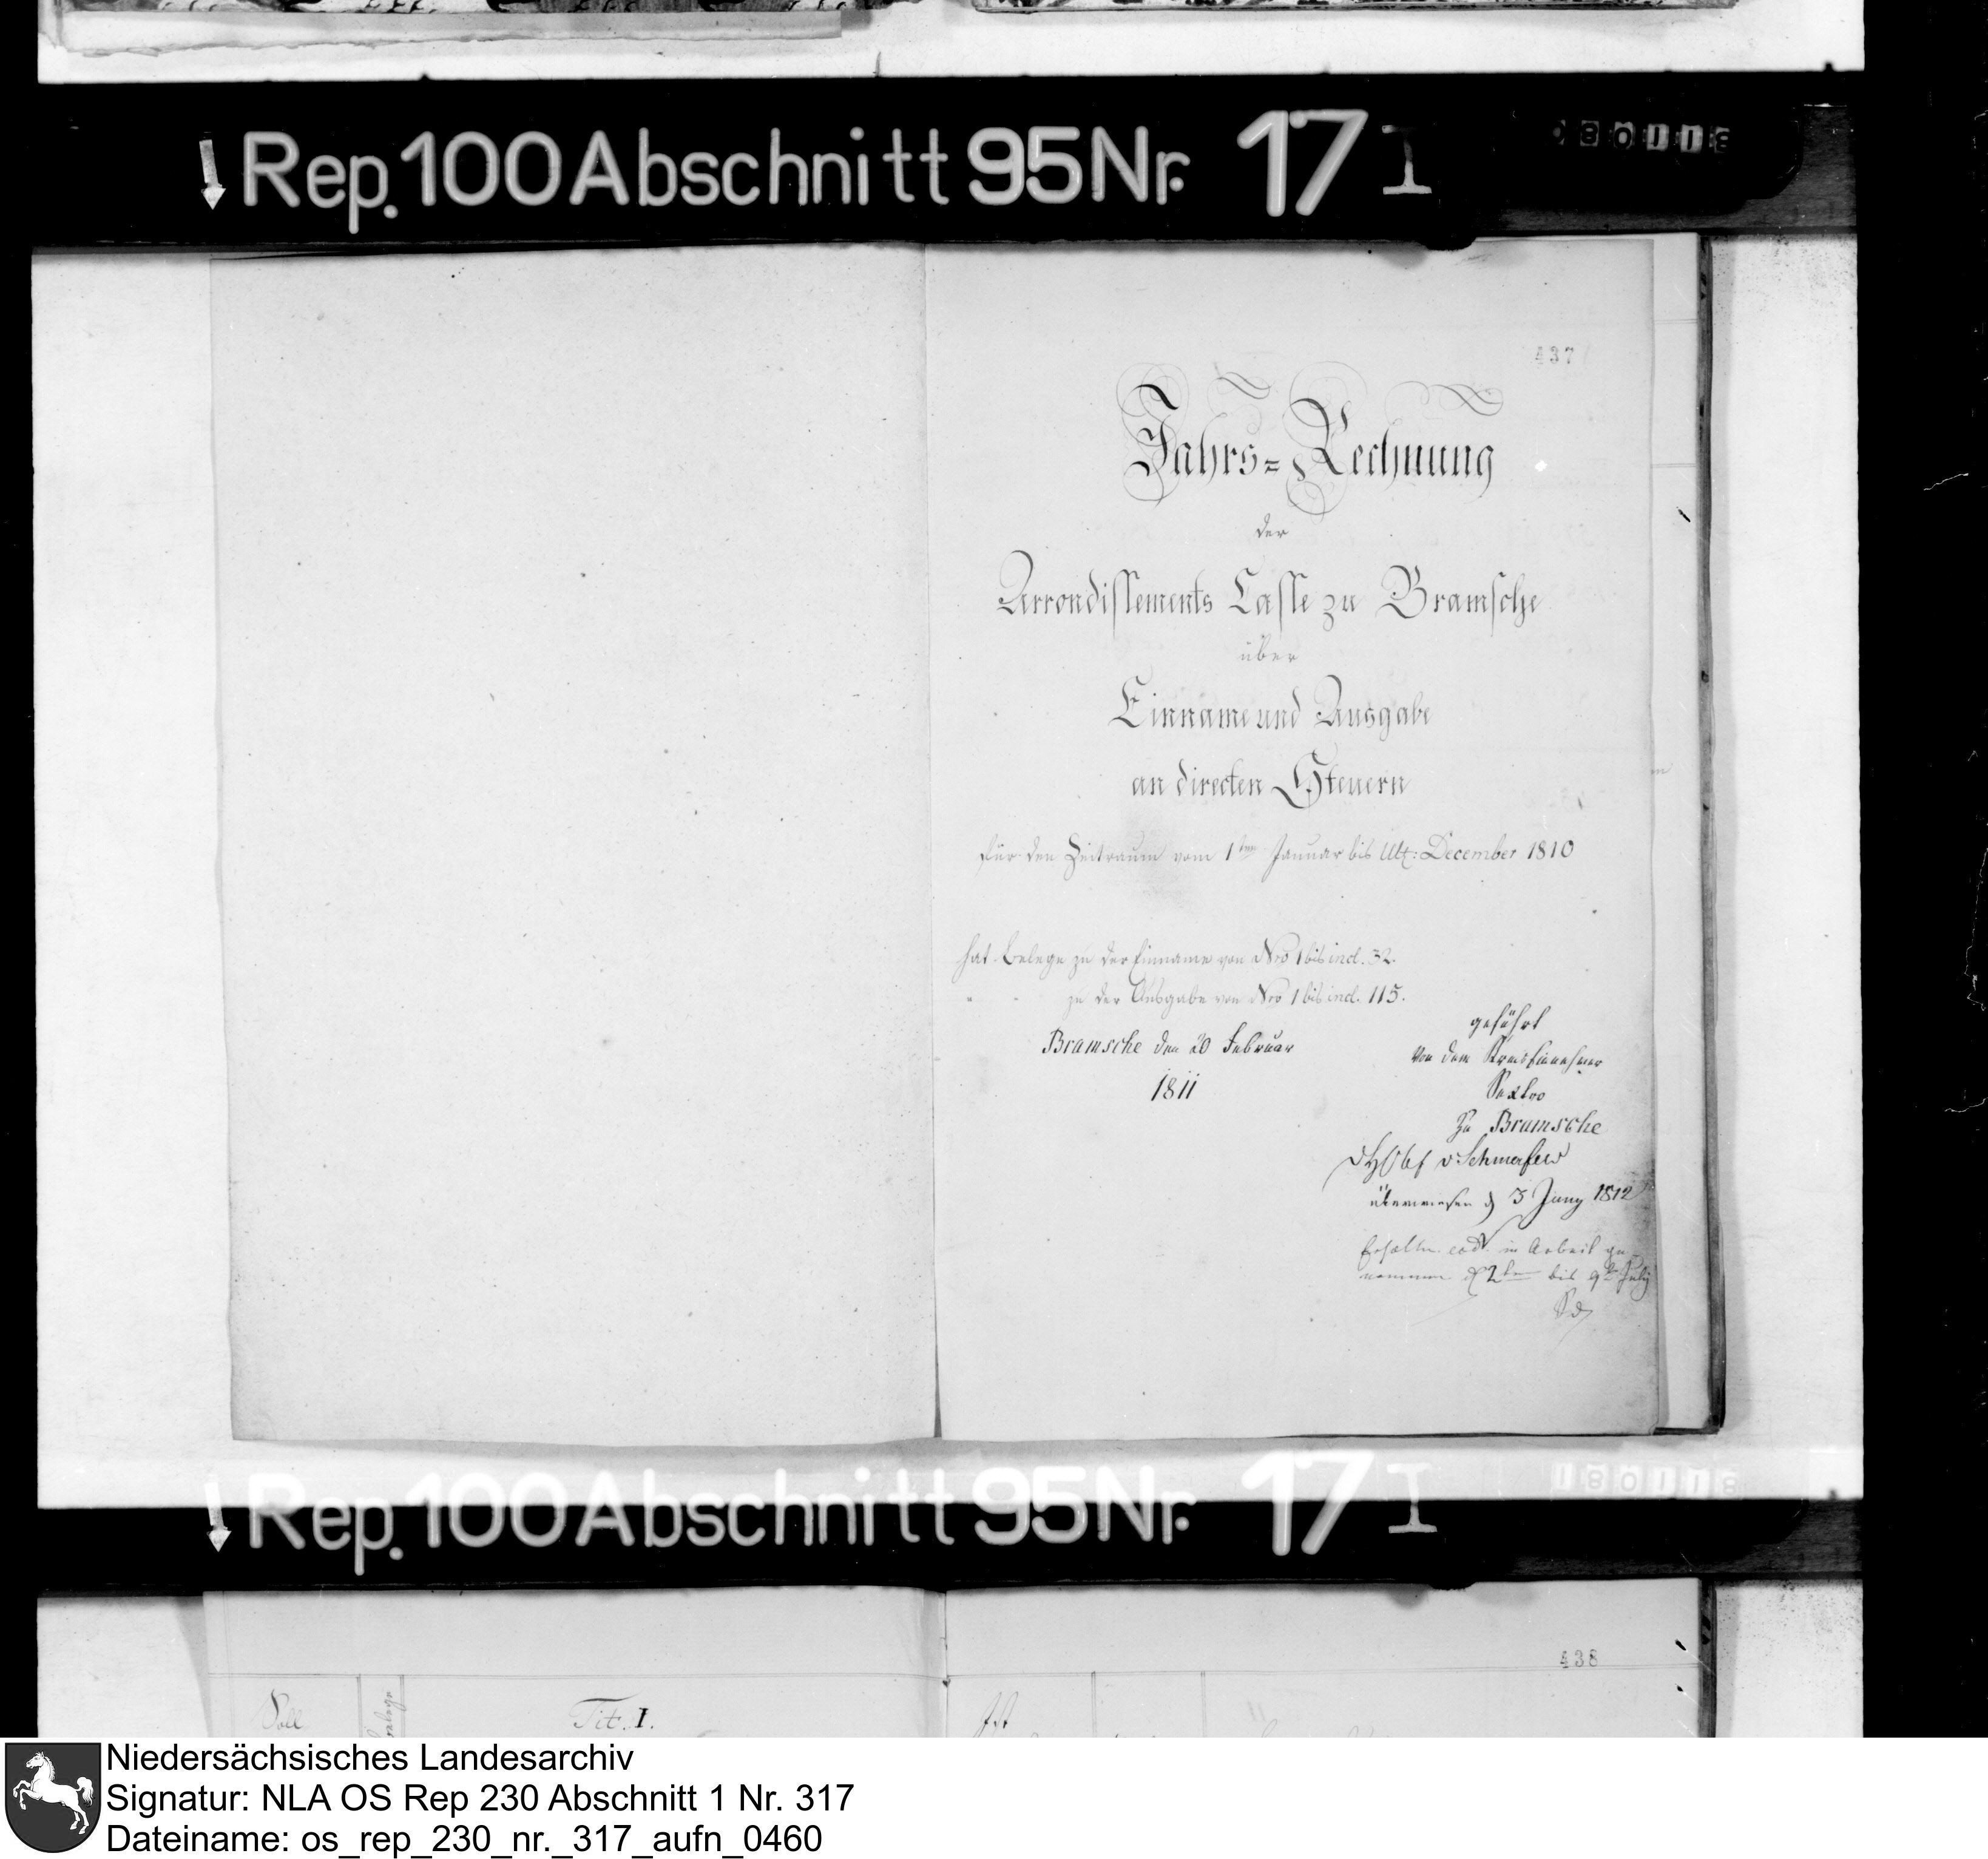 Rep. 100 Abschnitt 95 Nr. 17 I
180113
437
Jahrs=Rechnung
der
Arrondissements Casse zu Bramsche
über
Einname und Ausgabe
an directen Steuern
für den Zeitraum vom 1ten Januar bis Ult: December 1810
hat Belege zu der Einname von Nro 1 bis incl. 32.
" " zu der Ausgabe von Nro 1 bis incl. 115.
Bramsche den 20 Februar
1811
geführt
von dem Kreiseinnehmer
Sextro
zu Bramsche
überwiesen d 3 Juny 1812
Erhalten eod. in Arbeit ge-
nommen d 2ten bis 9t July
Rep. 100 Abschnitt 95 Nr. 17 I
180113
438
Soll
Belege
Tit. I.
Ist
Niedersächsisches Landesarchiv
Signatur: NLA OS Rep 230 Abschnitt 1 Nr. 317
Dateiname: os_rep_230_nr._317_aufn_0460